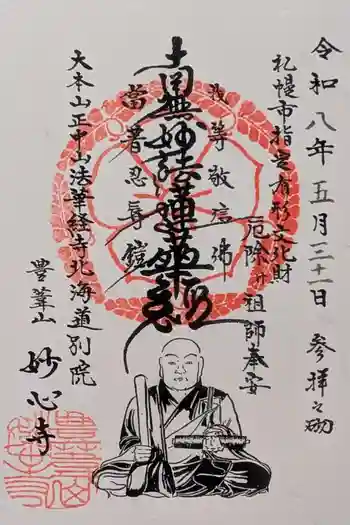 令和八年五月三十一日 参拝之砌
札幌市指定有形文化財
厄除け祖師奉安
我等敬信佛
南無妙法蓮華経
當著忍辱鎧
大本山正中山法華経寺北海道別院
豊葦山
妙心寺